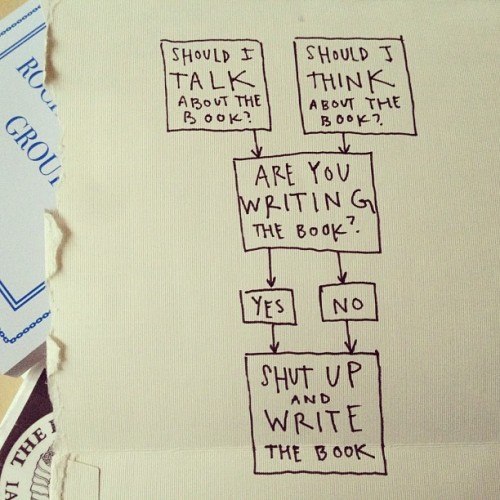 SHOULD I
TALK
ABOUT THE
BOOK?
SHOULD I
THINK
ABOUT THE
BOOK?
ARE YOU
WRITING
THE BOOK?
YES
NO
SHUT UP
AND
WRITE
THE BOOK
THE